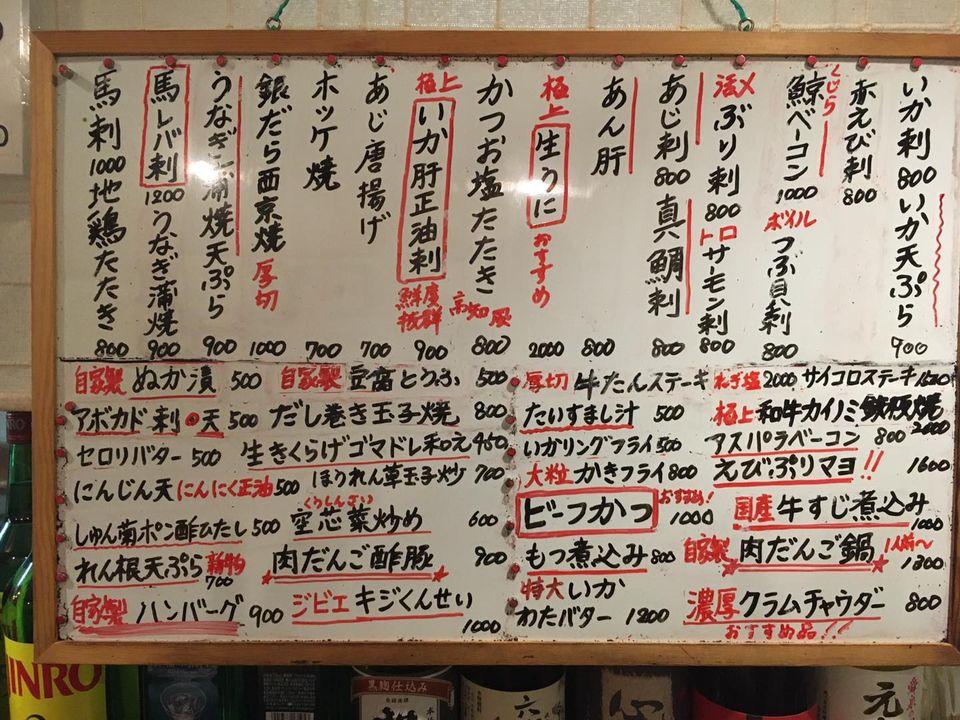 いか刺 800 いか天ぷら 900
赤えび刺 800
くじら
鯨ベーコン 1000 ボイル つぶ貝刺 800
活〆 ぶり刺 800 トロ サーモン刺 800
あじ刺 800 真鯛刺 800
あん肝 800
極上 生うに おすすめ 2000
かつお塩たたき 高知風 800
極上 いか肝正油刺 鮮度抜群 900
あじ唐揚げ 700
ホッケ焼 700
銀だら西京焼 厚切 1000
うなぎ蒲焼天ぷら 900
馬レバ刺 1200 うなぎ蒲焼 900
馬刺 1000 地鶏たたき 800
自家製 ぬか漬 500 自家製 豆腐とうふ 500
アボカド 刺・天 500 だし巻き玉子焼 800
セロリバター 500 生きくらげゴマドレ和え
にんじん天 にんにく正油 500 ほうれん草玉子炒 700
くうしんさい
しゅん菊ポン酢ひたし 500 空芯菜炒め 600
れん根天ぷら 新物 700 肉だんご酢豚 900
自家製 ハンバーグ 900 ジビエ キジくんせい 1000
厚切 牛たんステーキ ねぎ塩 2000 サイコロステーキ
たいすまし汁 500 極上 和牛カイノミ鉄板焼 2000
いかリングフライ 500 アスパラベーコン 800
大粒 かきフライ 800 えびぷりマヨ!! 1600
ビーフかつ おすすめ! 1000 国産 牛すじ煮込み 1000
もつ煮込み 800 自家製 肉だんご鍋 1人前〜 1300
特大 いか
わたバター 1200 濃厚 クラムチャウダー 800
おすすめ品!!
INRO
黒麹仕込み
六
元